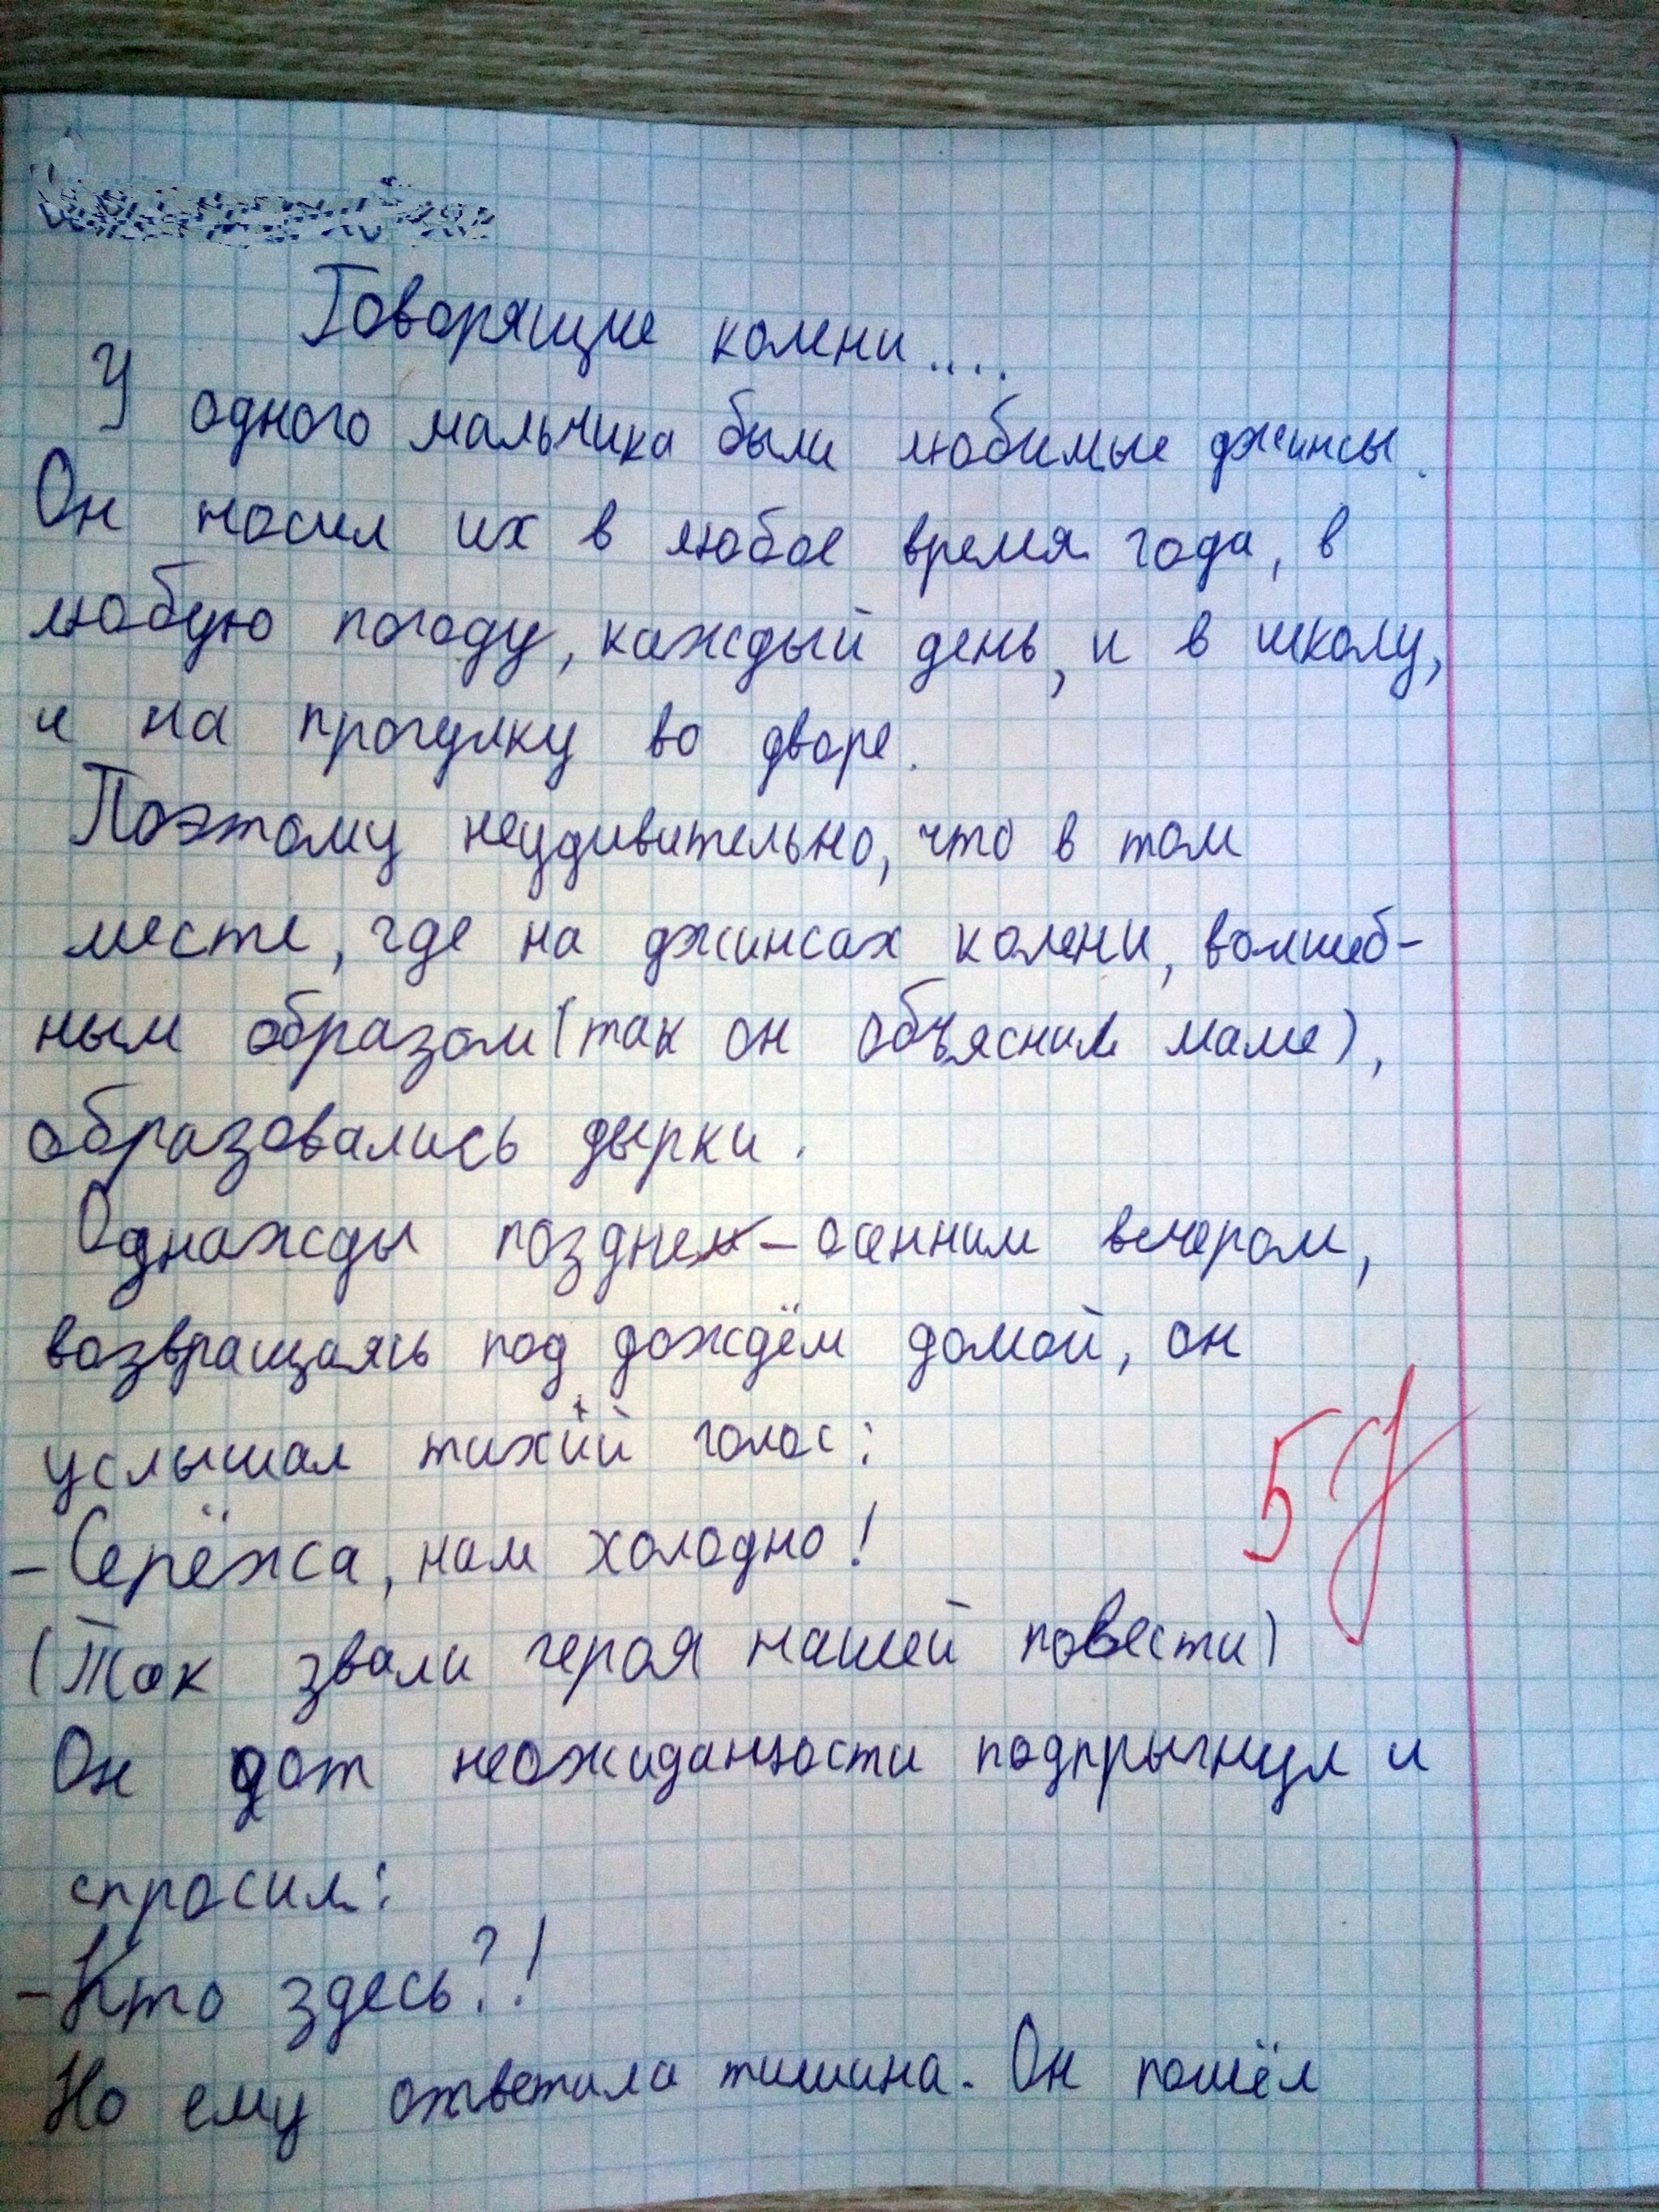 Говорящие колени....
У одного мальчика были любимые джинсы.
Он носил их в любое время года, в
любую погоду, каждый день, и в школу,
и на прогулку во дворе.
Поэтому неудивительно, что в том
месте, где на джинсах колени, волшеб-
ным образом (так он объяснил маме),
образовались дырки.
Однажды позднем-осенним вечером,
возвращаясь под дождём домой, он
услышал тихий голос:
- Серёжа, нам холодно!
(Так звали героя нашей повести)
5
Он от неожиданности подпрыгнул и
спросил:
- Кто здесь?!
Но ему ответила тишина. Он пошёл